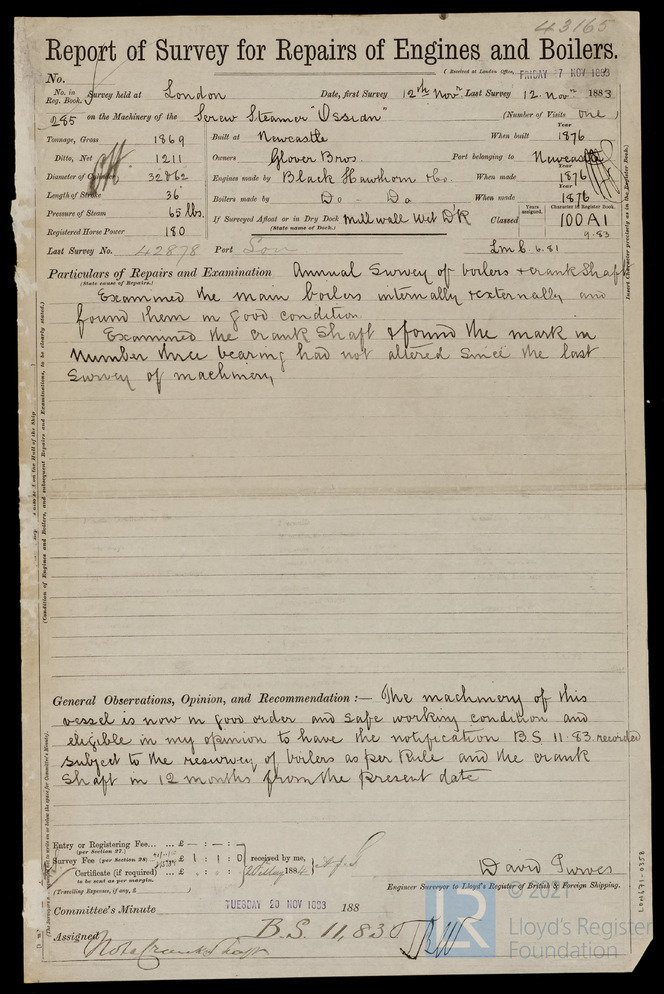 43165
Report of Survey for Repairs of Engines and Boilers.
(Received at London Office, FRIDAY 7 NOV 1883
No.
No. in Reg. Book. Survey held at London Date, first Survey 12th Novr Last Survey 12 Novr 1883
285 on the Machinery of the Screw Steamer "Ossian" (Number of Visits one)
Tonnage, Gross 1869 Built at Newcastle When built Year 1876
Ditto, Net 1211 Owners Glover Bros. Port belonging to Newcastle
Diameter of Cylinder 32 & 62 Engines made by Black Hawthorn & Co. When made Year 1876
Length of Stroke 36 Boilers made by Do Do When made Year 1876
Pressure of Steam 65 lbs. If Surveyed Afloat or in Dry Dock Millwall Wet Dk Classed Years assigned. Character in Register Book. 100 A1
(State name of Dock.)
Registered Horse Power 180 9.83
Last Survey No. 42878 Port Lon LMC 6.81
Particulars of Repairs and Examination Annual Survey of boilers & crank Shaft
(State cause of Repairs.)
Examined the main boilers internally & externally and
found them in good condition.
Examined the crank Shaft & found the mark in
number three bearing had not altered since the last
Survey of machinery
General Observations, Opinion, and Recommendation :— The machinery of this
vessel is now in good order and safe working condition and
eligible in my opinion to have the notification B.S. 11.83 recorded
subject to the resurvey of boilers as per Rule and the crank
Shaft in 12 months from the present date
Entry or Registering Fee... £ - : - : -
(per Section 27.)
Survey Fee (per Section 28) £ 1 : 1 : 0 received by me,
Certificate (if required) £ 188
(to be sent as per margin.
(Travelling Expenses, if any, £ )
David Purves
Engineer Surveyor to Lloyd's Register of British & Foreign Shipping.
Committee's Minute TUESDAY 20 NOV 1883 188
Assigned B.S. 11,83
Note Crank Shaft
Insert Character precisely as in the Register Book.
(Condition of Engines and Boilers, and subsequent Repairs and Examinations, to be clearly stated.)
LON671-0358
© 2021
LR
Lloyd's Register
Foundation